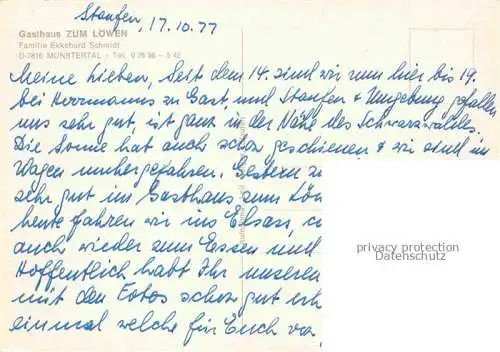 Staufen, 17.10.77
Gasthaus ZUM LÖWEN
Familie Ekkehard Schmidt
D-7816 MÜNSTERTAL · Tel. 0 76 36 - 5 42
Meine Lieben, Seit dem 14. sind wir nun hier bis 19.
bei Herrmanns zu Gast und Staufen + Umgebung gefallen
uns sehr gut, ist ganz in der Nähe des Schwarzwaldes.
Die Sonne hat auch schon geschienen & wir sind im
Wagen umhergefahren. Gestern z
sehr gut im Gasthaus zum Lön
heute fahren wir ins Elsass,
auch wieder zum Essen und
Hoffentlich habt Ihr unseren
mit den Fotos schon gut
einmal welche für Euch vor
privacy protection
Datenschutz